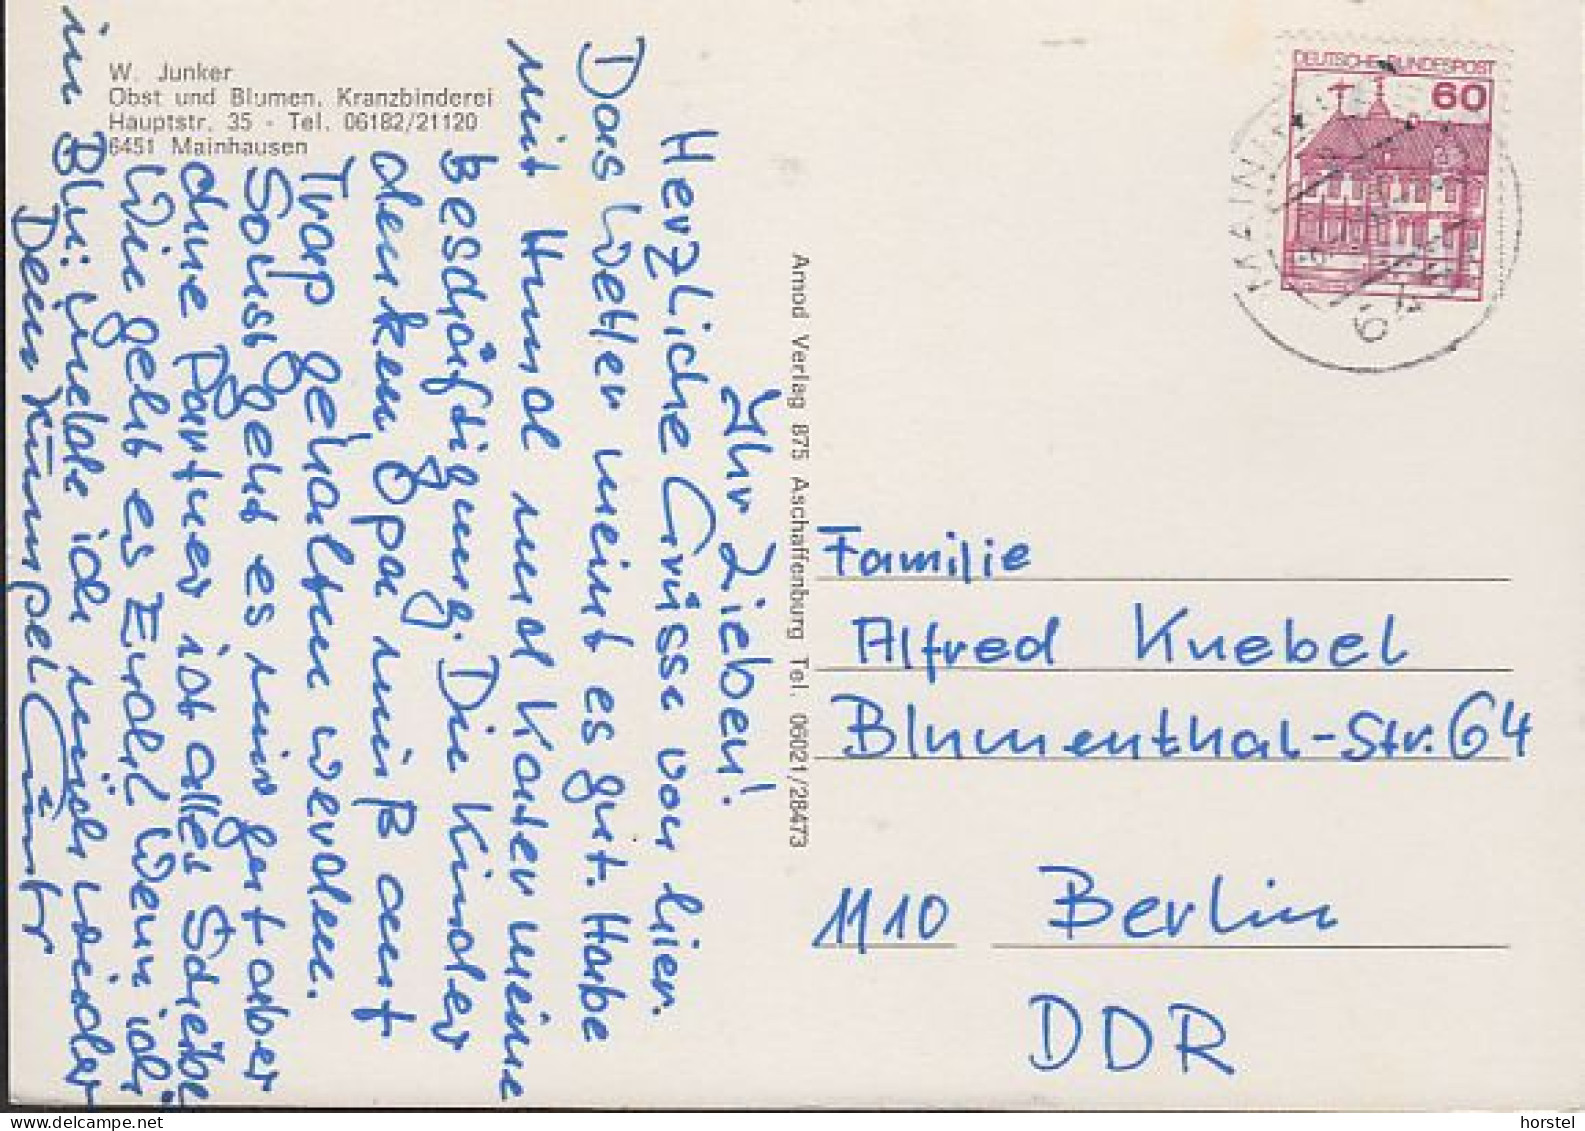 W. Junker
Obst und Blumen, Kranzbinderei
Hauptstr. 35 - Tel. 06182/21120
6451 Mainhausen
Ihr Lieben!
Herzliche Grüsse von hier.
Das Wetter meint es gut. Habe
mit Hund und Kater meine
Beschäftigung. Die Kinder
denken Opa muß auf
Trap gehalten werden.
Sonst geht es mir gut aber
ohne Partner ist alles Scheibe
Wie geht es Euch? Wenn ich
in Bln: melde ich mich wieder
Dein Kumpel
Amod Verlag 875 Aschaffenburg Tel. 06021/28473
DEUTSCHE BUNDESPOST
60
Familie
Alfred Knebel
Blumenthal-Str. 64
1110 Berlin
DDR
horstel